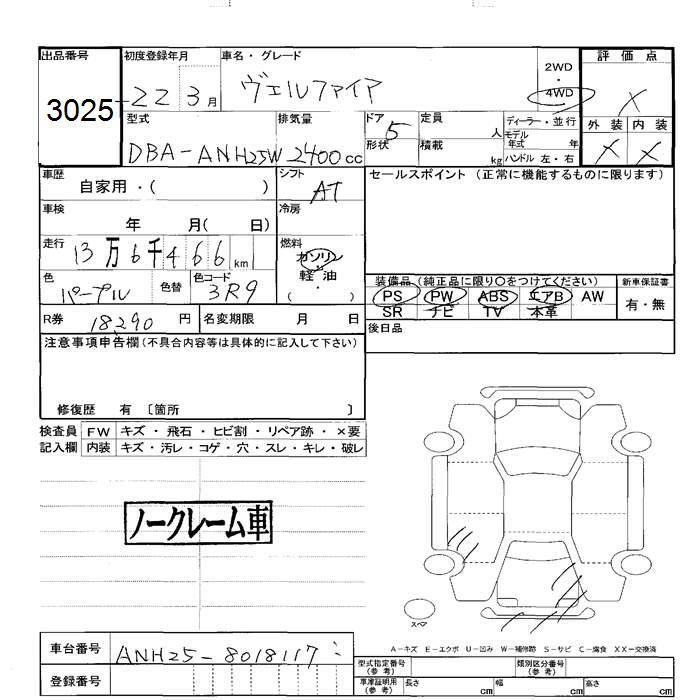 出品番号 初度登録年月 車名・グレード 2WD ・ 4WD 評価点
3025 22 3月 ヴェルファイア X
型式 排気量 ドア 定員 人 ディーラー・並行 外装 内装
DBA-ANH25W 2400cc 5 形状 積載 kg モデル年式 年 ハンドル 左・右 X X
車歴 自家用・( ) シフト AT セールスポイント (正常に機能するものに限ります)
車検 年 月( 日) 冷房
走行 13万6千466km 燃料 ガソリン・軽油 ( )
色 パープル 色替 色コード 3R9
装備品 (純正品に限り○をつけてください) 新車保証書
PS PW ABS エアB AW 有・無
SR ナビ TV 本革
R券 18290円 名変期限 月 日 後日品
注意事項申告欄(不具合内容等は具体的に記入して下さい)
修復歴 有 〔箇所 〕
検査員記入欄 FW キズ・飛石・ヒビ割・リペア跡・×要
内装 キズ・汚レ・コゲ・穴・スレ・キレ・破レ
ノークレーム車
スペア
A-キズ E-エクボ U-凹み W-補修跡 S-サビ C-腐食 XX-交換済
車台番号 ANH25-8018117
登録番号
型式指定番号(参考) 類別区分番号(参考)
車庫証明用(参考) 長さ cm 幅 cm 高さ cm